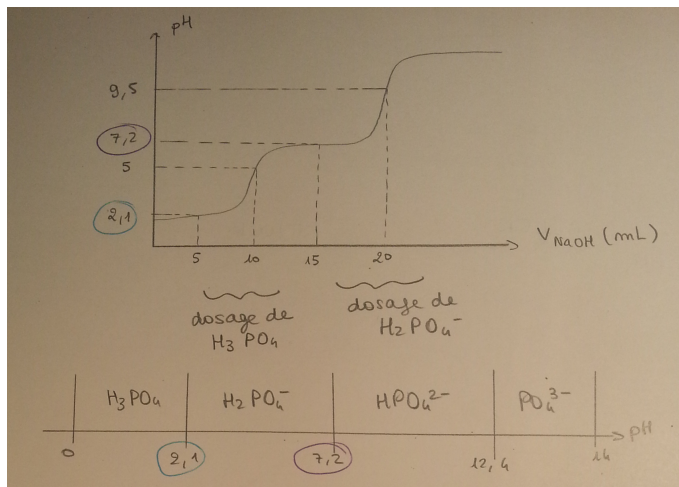 pH
9,5
7,2
5
2,1
5 10 15 20
V NaOH (mL)
dosage de H3PO4
dosage de H2PO4-
H3PO4 H2PO4- HPO42- PO43-
pH
0 2,1 7,2 12,4 14